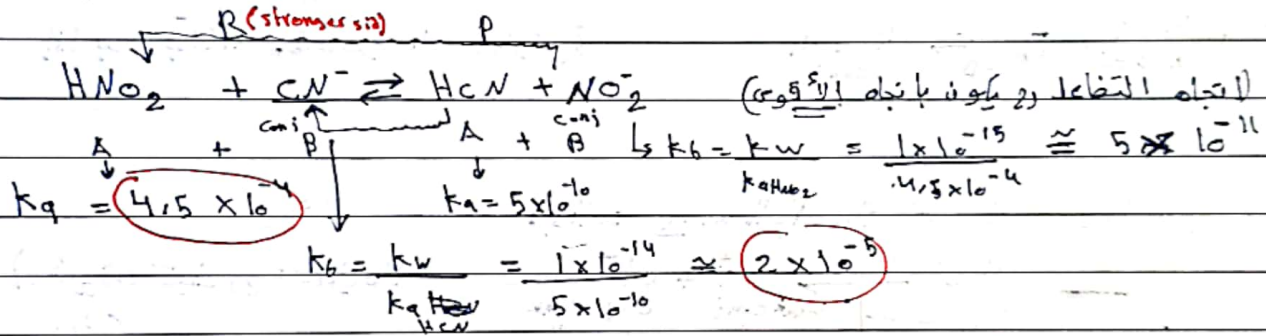 R (stronger sid) P
HNO₂ + CN⁻ ⇄ HCN + NO₂⁻ (اتجاه التفاعل يكون باتجاه الأقوى)
conj conj
A + B A + B ↳ kb = kw / ka HNO₂ = 1x10⁻¹⁵ / 4,5x10⁻⁴ ≅ 5 x 10⁻¹¹
ka = 4,5 x 10⁻⁴ ka = 5x10⁻¹⁰
kb = kw / ka HCN = 1x10⁻¹⁴ / 5x10⁻¹⁰ ≈ 2 x 10⁻⁵